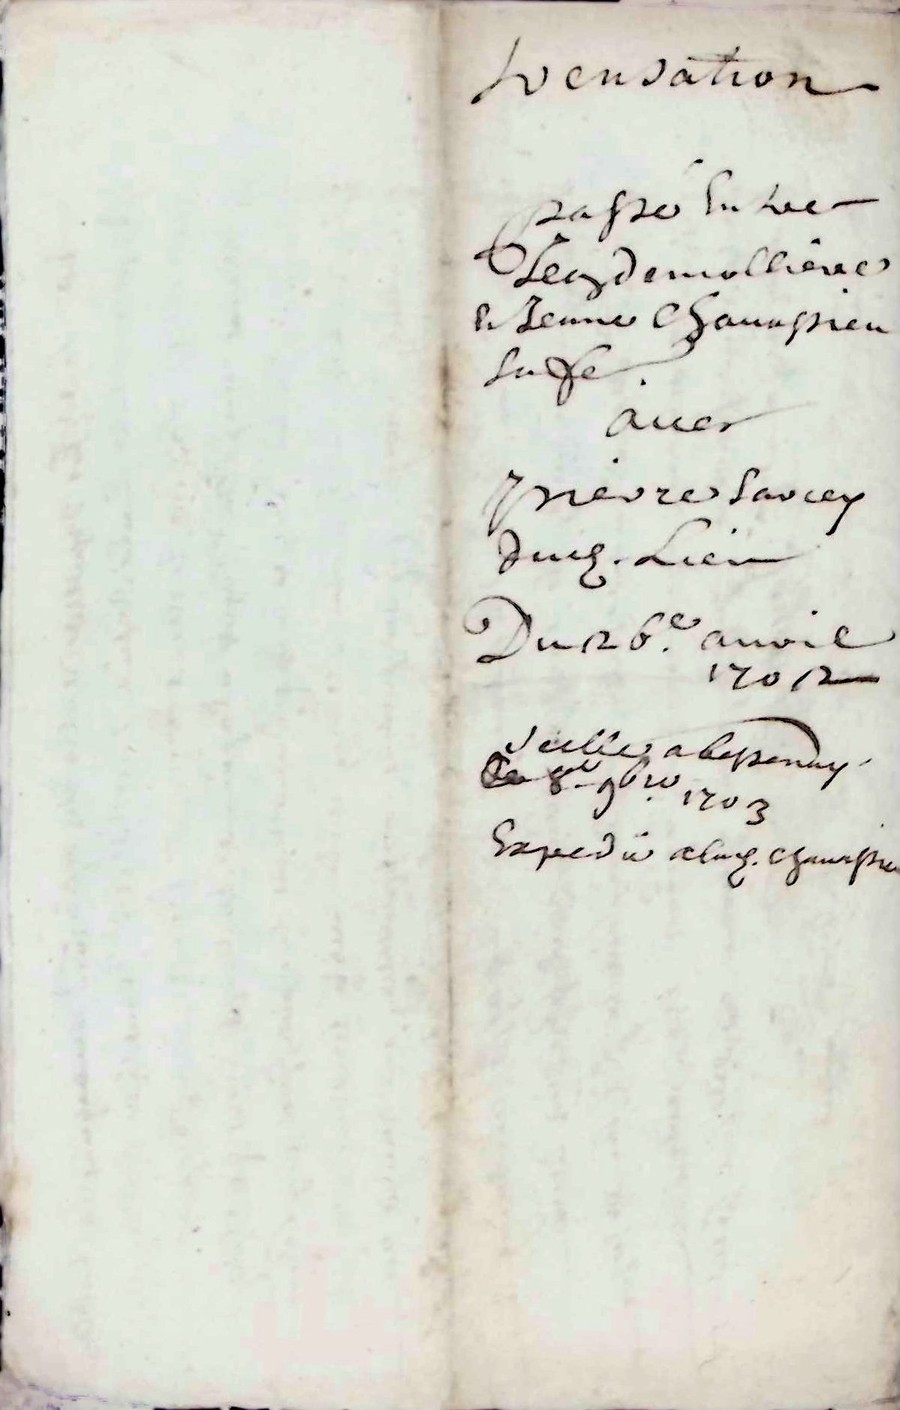 passé Entre
Leoz demollieres
Et Jeanne Chauapieu
Sa fe
avec
pierre Saucey
dud. Lieu
Du 26.e auvril
1702
Scellé a bessenay
Le 8e 9bre 1703
Expedié alad. chauapieu